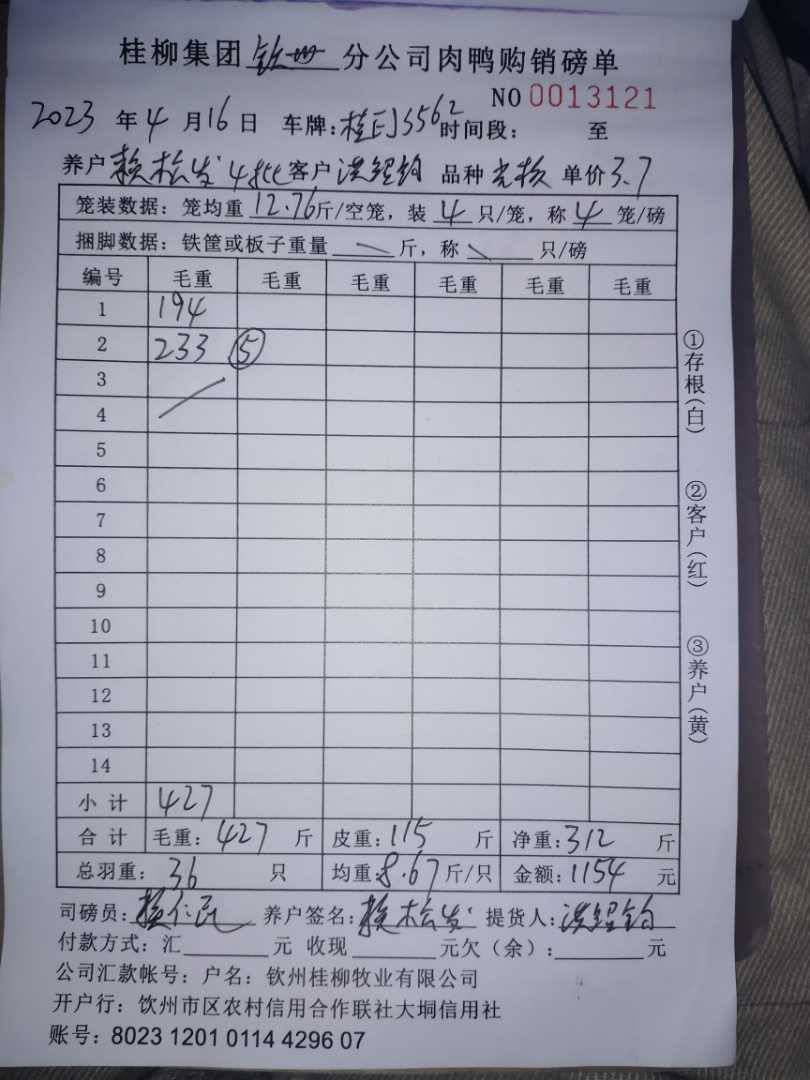 桂柳集团钦州分公司肉鸭购销磅单
NO 0013121
2023年4月16日 车牌:桂 S5562 时间段: 至
养户赖松发 4批 客户洪绍钧 品种 单价3.7
笼装数据:笼均重12.76斤/空笼,装4只/笼,称4笼/磅
捆脚数据:铁筐或板子重量 斤,称 只/磅
编号 毛重 毛重 毛重 毛重 毛重 毛重
1 194
2 233 ⑤
3
4
5
6
7
8
9
10
11
12
13
14
小计 427
合计 毛重:427斤 皮重:115斤 净重:312斤
总羽重:36只 均重:8.67斤/只 金额:1154元
司磅员: 养户签名:赖松发 提货人:洪绍钧
付款方式:汇 元 收现 元欠(余): 元
公司汇款帐号:户名:钦州桂柳牧业有限公司
开户行:钦州市区农村信用合作联社大垌信用社
账号:8023 1201 0114 4296 07
①存根(白)
②客户(红)
③养户(黄)